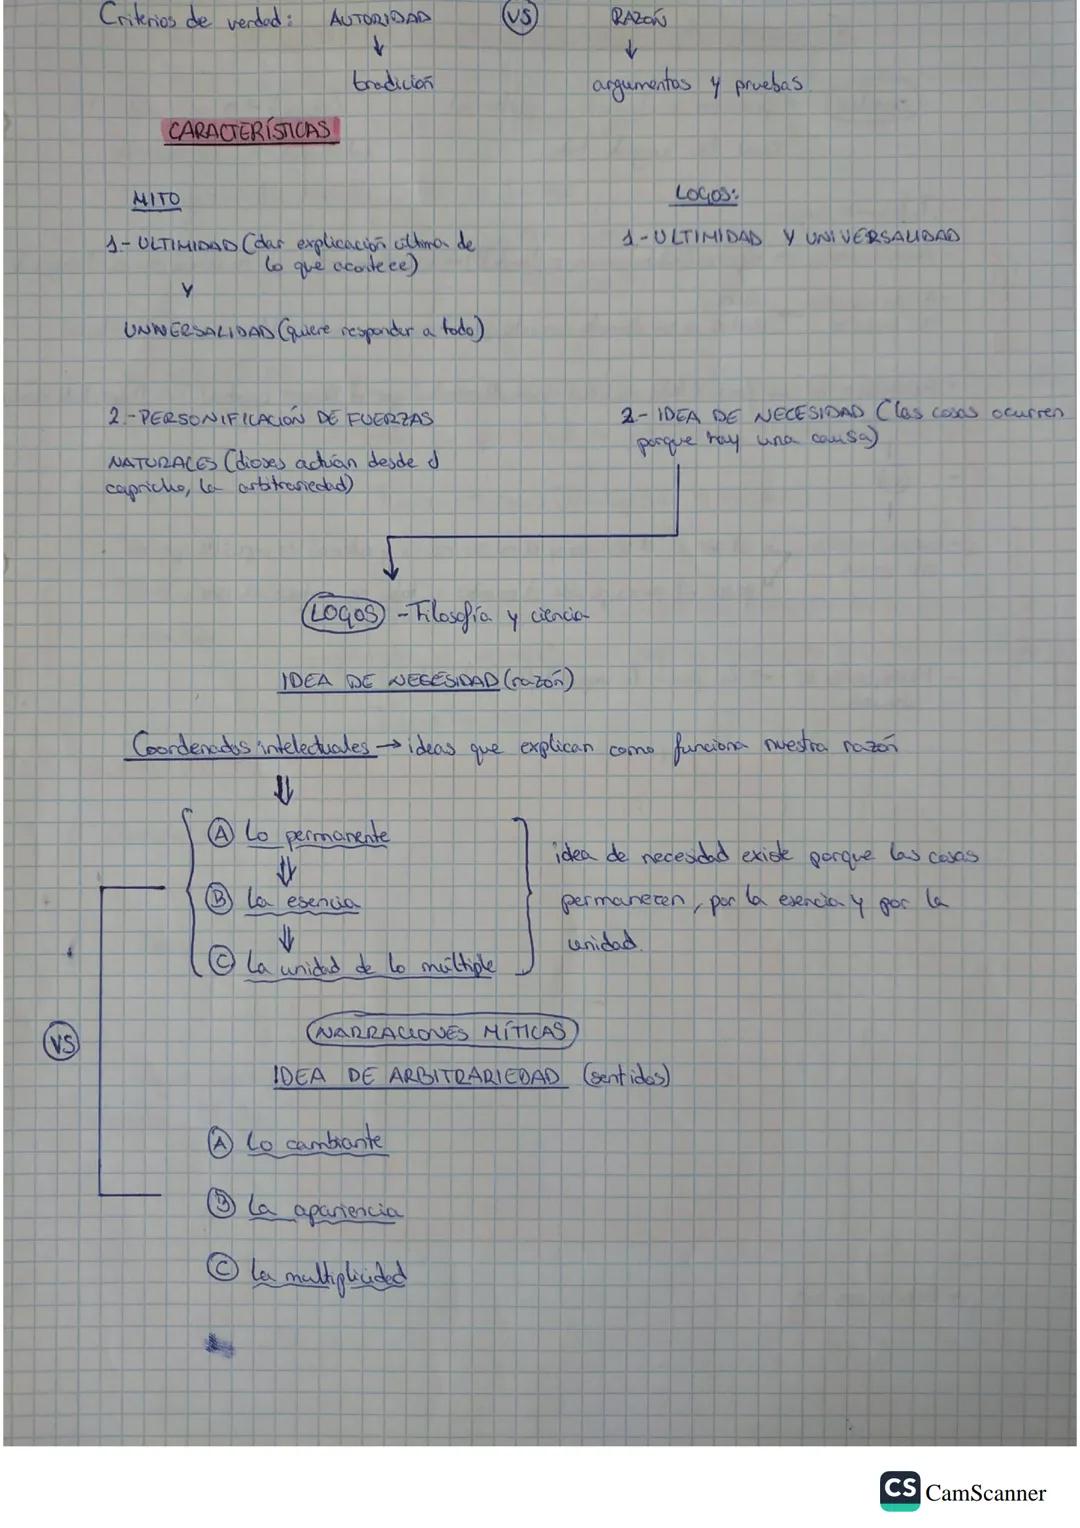 Criterios de verdad: AUTORIDAD VS RAZÓN
tradición argumentos y pruebas
CARACTERÍSTICAS
MITO LOGOS:
1- ULTIMIDAD (dar explicación última de 1- ULTIMIDAD Y UNIVERSALIDAD
lo que acontece)
Y
UNIVERSALIDAD (quiere responder a todo)
2-PERSONIFICACIÓN DE FUERZAS 2- IDEA DE NECESIDAD (las cosas ocurren
porque hay una causa)
NATURALES (dioses actúan desde el
capricho, la arbitrariedad)
LOGOS - Filosofía y ciencia
IDEA DE NECESIDAD (razón)
Coordenadas intelectuales → ideas que explican como funciona nuestra razón
A Lo permanente
idea de necesidad existe porque las cosas
B La esencia permanecen, por la esencia y por la
unidad.
C La unidad de lo múltiple
NARRACIONES MÍTICAS
VS
IDEA DE ARBITRARIEDAD (sentidos)
A Lo cambiante
B La apariencia
C La multiplicidad
CS CamScanner